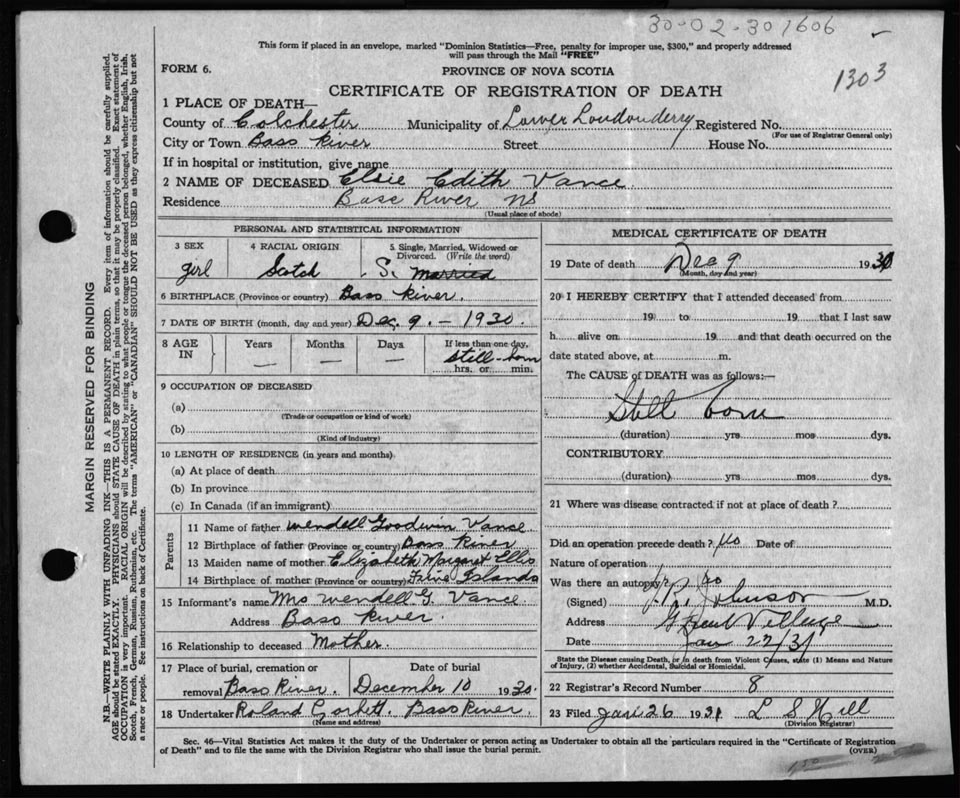 30-02-301606
This form if placed in an envelope, marked "Dominion Statistics—Free, penalty for improper use, $300," and properly addressed
will pass through the Mail "FREE"
1303
FORM 6.
PROVINCE OF NOVA SCOTIA
CERTIFICATE OF REGISTRATION OF DEATH
1 PLACE OF DEATH—
County of Colchester Municipality of Lower Londonderry Registered No.
(For use of Registrar General only)
City or Town Bass River Street House No.
If in hospital or institution, give name
2 NAME OF DECEASED Elsie Edith Vance
Residence Bass River NS
(Usual place of abode)
PERSONAL AND STATISTICAL INFORMATION
3 SEX 4 RACIAL ORIGIN 5 Single, Married, Widowed or
Divorced. (Write the word)
girl Scotch S. Married
6 BIRTHPLACE (Province or country) Bass River.
7 DATE OF BIRTH (month, day and year) Dec. 9. - 1930.
8 AGE IN Years Months Days If less than one day,
— — — still-born
hrs. or min.
9 OCCUPATION OF DECEASED
(a)
(Trade or occupation or kind of work)
(b)
(Kind of industry)
10 LENGTH OF RESIDENCE (in years and months)
(a) At place of death
(b) In province
(c) In Canada (if an immigrant)
Parents
11 Name of father Wendell Goodwin Vance
12 Birthplace of father (Province or country) Bass River
13 Maiden name of mother Elizabeth Margaret Ellis
14 Birthplace of mother (Province or country) Five Islands
15 Informant's name Mrs Wendell G. Vance
Address Bass River.
16 Relationship to deceased Mother.
17 Place of burial, cremation or Date of burial
removal Bass River. December 10 1930.
18 Undertaker Roland Corbett. Bass River.
(Name and address)
MEDICAL CERTIFICATE OF DEATH
19 Date of death Dec 9 1930
(Month, day and year)
20 I HEREBY CERTIFY that I attended deceased from
19 to 19 that I last saw
h alive on 19 and that death occurred on the
date stated above, at m.
The CAUSE of DEATH was as follows:—
Still born
(duration) yrs mos dys.
CONTRIBUTORY
(duration) yrs mos dys.
21 Where was disease contracted if not at place of death?
Did an operation precede death? No Date of
Nature of operation
Was there an autopsy? no
(Signed) Johnson M.D.
Address Great Village
Date Jan 22/31
State the Disease causing Death, or in death from Violent Causes, state (1) Means and Nature
of Injury, (2) whether Accidental, Suicidal or Homicidal.
22 Registrar's Record Number 8
23 Filed Jan 26 1931 L S Hill
(Division Registrar)
Sec. 46—Vital Statistics Act makes it the duty of the Undertaker or person acting as Undertaker to obtain all the particulars required in the "Certificate of Registration
of Death" and to file the same with the Division Registrar who shall issue the burial permit. (OVER)
MARGIN RESERVED FOR BINDING
N.B.—WRITE PLAINLY WITH UNFADING INK—THIS IS A PERMANENT RECORD. Every item of information should be carefully supplied.
AGE should be stated EXACTLY. PHYSICIANS should STATE CAUSE OF DEATH in plain terms, so that it may be properly classified. Exact statement of
OCCUPATION is very important. RACIAL ORIGIN will be described by stating to what people or tongue the deceased person belonged, whether English, Irish,
Scotch, French, German, Russian, Ruthenian, etc. The terms "AMERICAN" or "CANADIAN" SHOULD NOT BE USED as they express citizenship but not
a race or people. See instructions on back of Certificate.